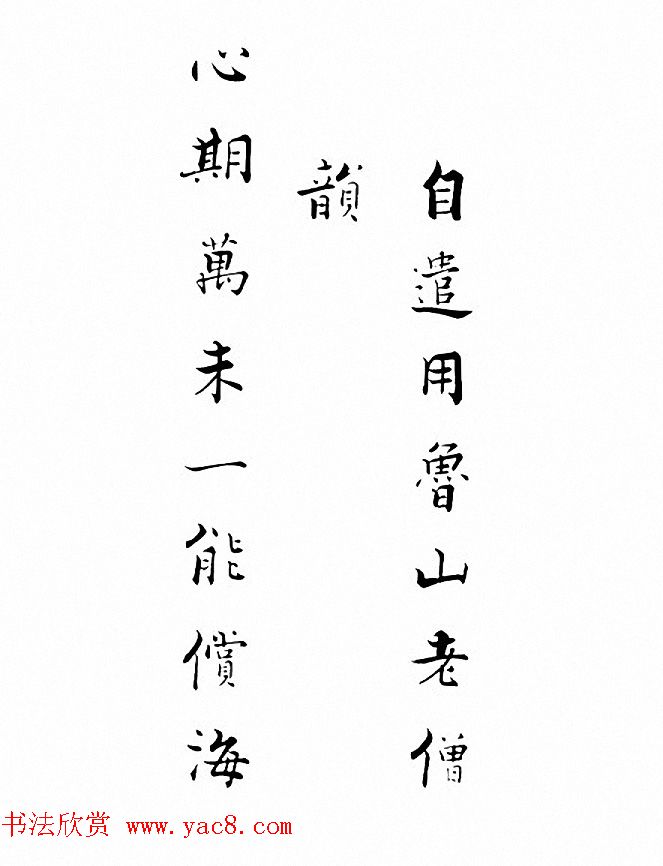 自遣用魯山老僧
韻
心期萬未一能償海
书法欣赏 www.yac8.com